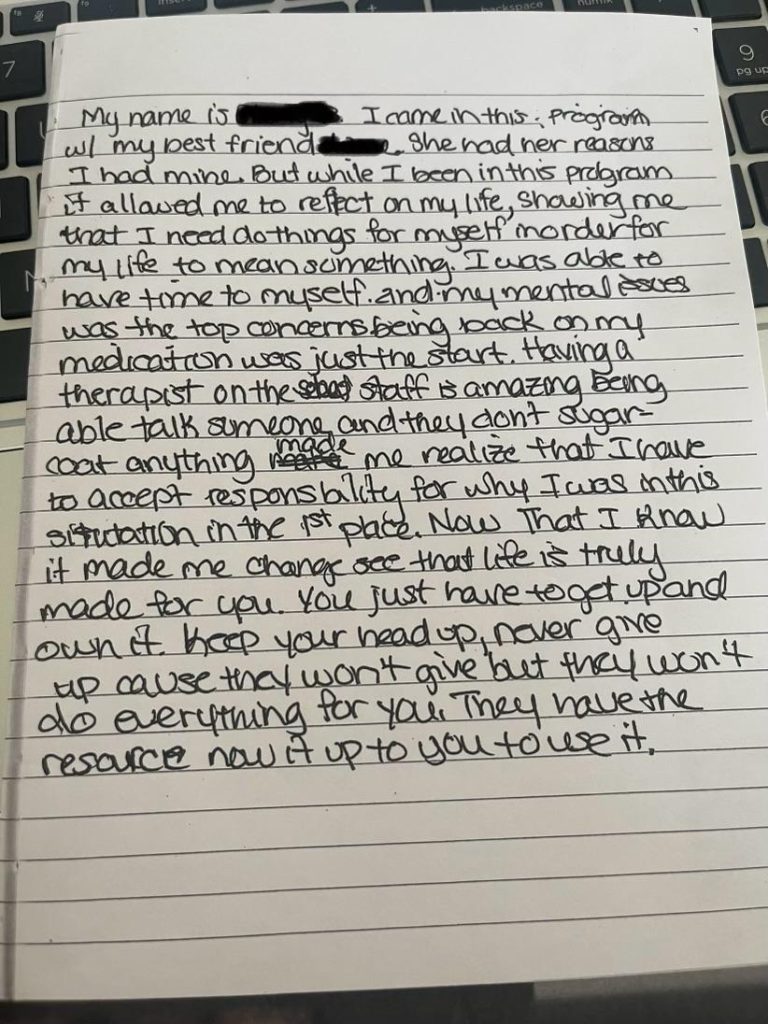 My name is I came in this program
w/ my best friend . She had her reasons
I had mine. But while I been in this program
it allowed me to reflect on my life, showing me
that I need do things for myself in order for
my life to mean something. I was able to
have time to myself. and my mental issues
was the top concerns being back on my
medication was just the start. Having a
therapist on the staff is amazing Being
able talk someone and they don't sugar-
coat anything made me realize that I have
to accept responsbility for why I was in this
situtation in the 1st place. Now That I know
it made me change see that life is truly
made for you. You just have to get up and
own it. Keep your head up, never give
up cause they won't give but they won't
do everything for you. They have the
resource now it up to you to use it.
9
pg up
7
backspace